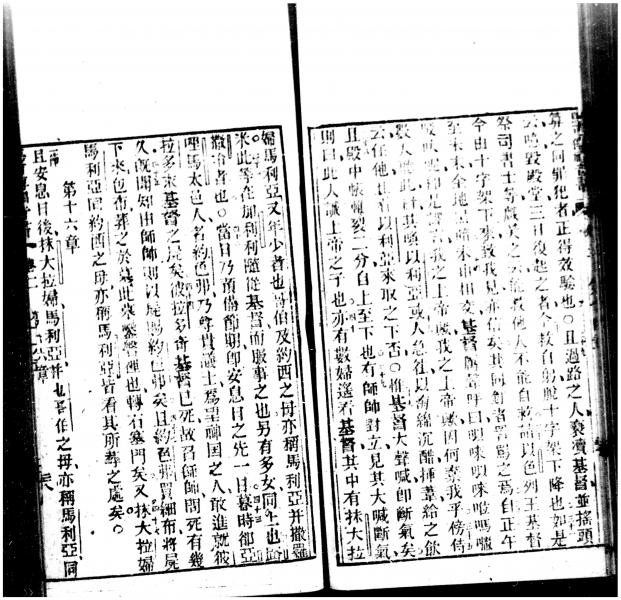 算之同罪犯者正得效驗也○且過路之人褻瀆基督並搖頭
云噫毀殿堂三日復起之者今救自躬脫十字架下降也如是
祭司書士等戲笑之云能救他人不能自救請以色列王基督
今由十字架下來致我見亦信矣其同釘者詈罵之焉自正午
至未末全地昏暗未申由交基督聲呼曰唭唻唭唻
即是譯言我之上帝歟我之上帝歟因何棄我乎傍待
數人聽此曰其喚以利亞或人急往以海絨沉醋插葦給之飲
云任他且看以利亞來取之下否○惟基督大聲喊即斷氣矣
且殿中帳幔裂二分自上至下也有師師對立見其大喊斷氣
則曰此人誠上帝之子也亦有數婦遙看基督其中有抹大拉
婦馬利亞又年少者也哥伯及約西之母亦稱馬利亞并撒羅
米此等在加利利隨從基督而服事之也另有多女同上也路
撒冷者也○當日乃預備節期即安息日之先一日暮時邵亞
哩馬太邑人名約色弗乃尊貴議士為望神國之人敢進就彼
拉多求基督之屍矣彼拉多奇基督已死故召師師問死有幾
久既聞知由師師則以屍賜約色弗矣且約色弗買細布將屍
下來包布葬之於墓此墓鑿磐裡也轉石塞門矣又抹大拉婦
馬利亞同約西之母亦稱馬利亞皆看其所葬之處矣○
第十六章
且安息日後抹大拉婦馬利亞并也哥伯之母亦稱馬利亞同